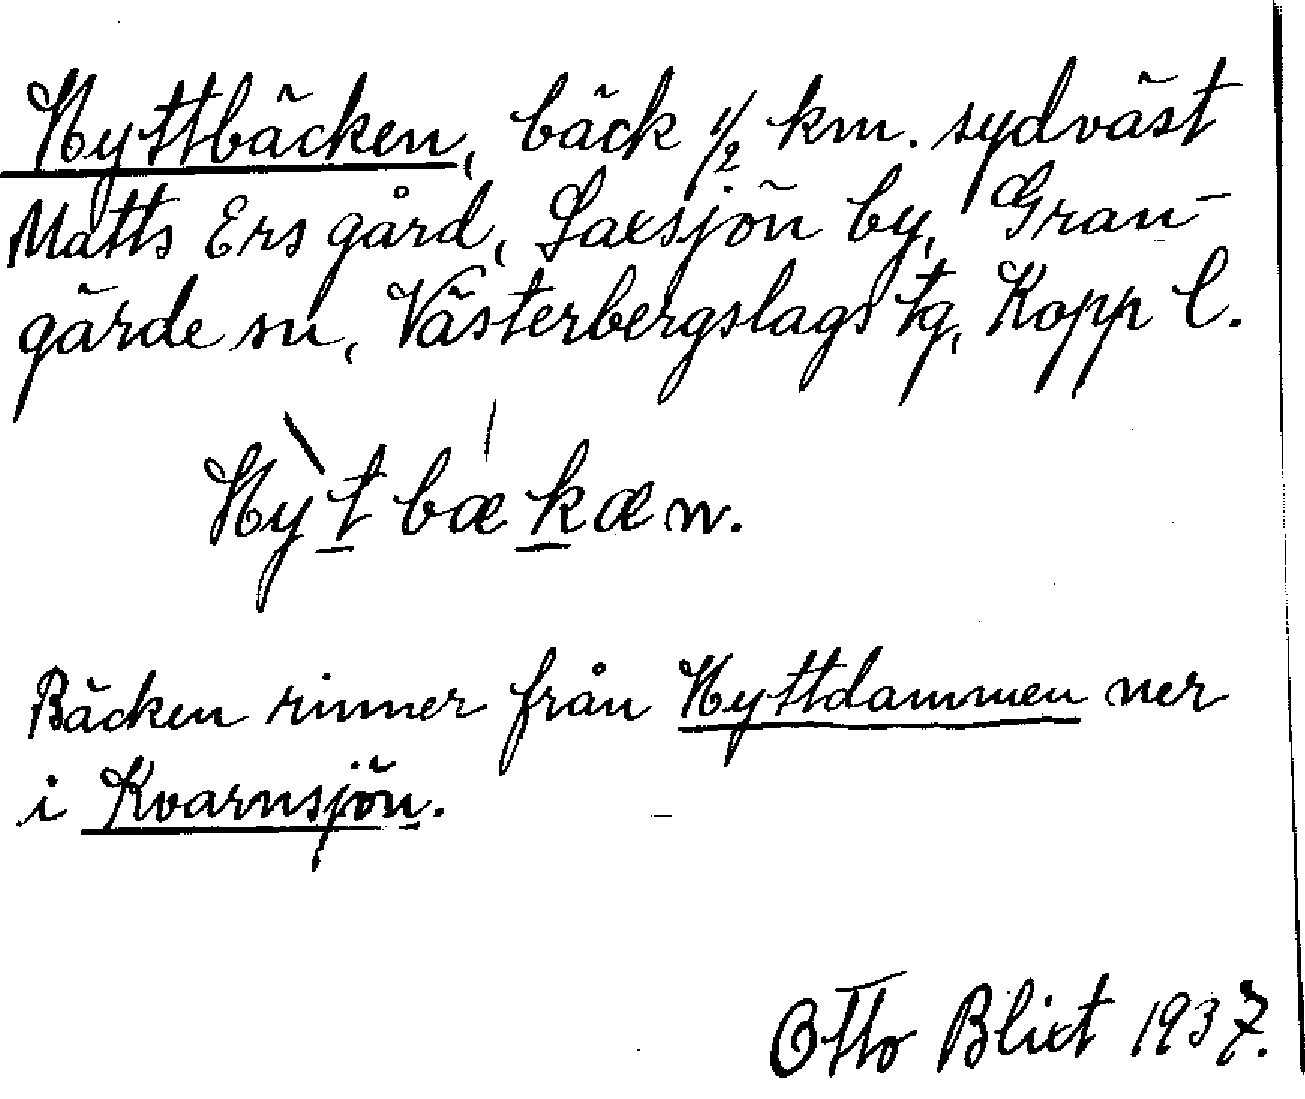 Hyttbäcken, bäck 1/2 km. sydväst
Matts Ers gård, Saxsjön by, Gran-
gärde sn, Västerbergslags tg, Kopp l.
Hỳt bækæn.
Bäcken rinner från Hyttdammen ner
i Kvarnsjön.
Otto Blixt 1937.